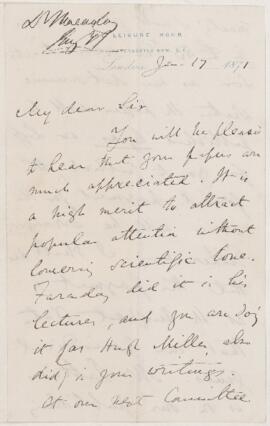 LEISURE HOUR
London Jan 17 1871
My dear Sir
You will be pleased
to hear that your papers are
much appreciated. It is
a high merit to attract
popular attention without
lowering scientific tone.
Faraday did it in his
lectures, and you are doing
it (as Hugh Miller also
did) in your writings.
At our next Committee